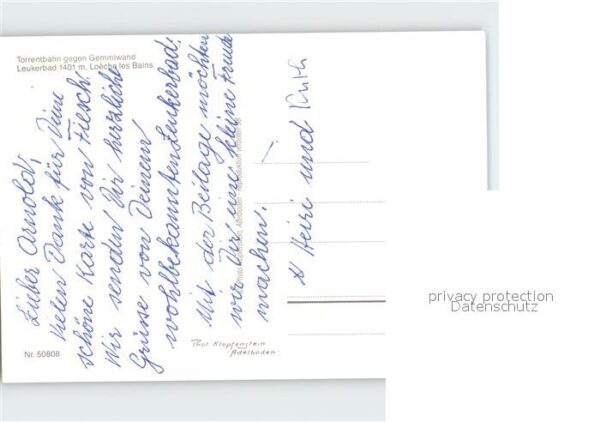 Torrentbahn gegen Gemmiwand
Leukerbad 1401 m, Loèche les Bains
Lieber Arnold,
Vielen Dank für Deine
schöne Karte von Fiesch.
Wir senden Dir herzliche
Grüsse von Deinem
wohlbekannten Leukerbad.
Mit der Beilage möchten
wir Dir eine kleine Freude
machen.
Heiri und Ruth
Nr. 50808
Klopfenstein
Adelboden
privacy protection
Datenschutz